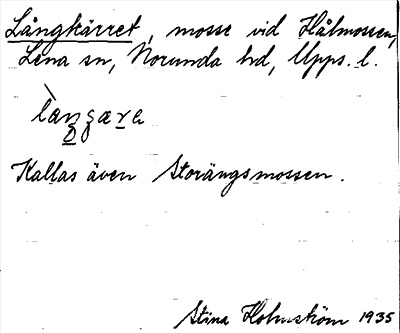 Långkärret, mosse vid Hålmossen,
Lena sn, Norunda hd, Upps. l.
Kallas även Storängsmossen.
Stina Holmström 1935